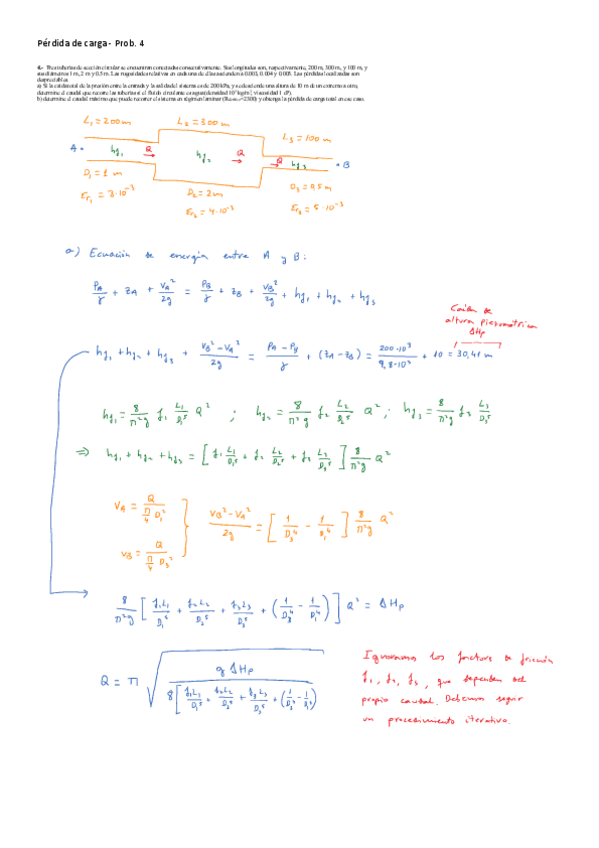 Pérdida de carga - Prob. 4
4.- Tres tuberías de sección circular se encuentran conectadas consecutivamente. Sus longitudes son, respectivamente, 200 m, 300 m, y 100 m, y
sus diámetros 1 m, 2 m y 0.5 m. Las rugosidades relativas en cada una de ellas ascienden a 0.003, 0.004 y 0.005. Las pérdidas localizadas son
despreciables.
a) Si la caída total de la presión entre la entrada y la salida del sistema es de 200 kPa, y se desciende una altura de 10 m de un extremo a otro,
determine el caudal que recorre las tuberías si el fluido circulante es agua (densidad 10³ kg/m³, viscosidad 1 cP).
b) determine el caudal máximo que puede recorrer el sistema en régimen laminar (Re =2300) y obtenga la pérdida de carga total en ese caso.
L₁ = 200 m L₂ = 300 m
L₃ = 100 m
A • hf₁ Q hf₂ Q Q hf₃ • B
D₁ = 1 m D₂ = 2 m D₃ = 0,5 m
Er₁ = 3·10⁻³ Er₂ = 4·10⁻³ Er₃ = 5·10⁻³
a) Ecuación de energía entre A y B:
P_A/γ + z_A + v_A²/2g = P_B/γ + z_B + v_B²/2g + hf₁ + hf₂ + hf₃
Caída de
altura piezométrica
ΔHp
hf₁ + hf₂ + hf₃ + (v_B² - v_A²)/2g = (P_A - P_B)/γ + (z_A - z_B) = 200·10³/9,8·10³ + 10 = 30,41 m
hf₁ = 8/π²g f₁ L₁/D₁⁵ Q² ; hf₂ = 8/π²g f₂ L₂/D₂⁵ Q² ; hf₃ = 8/π²g f₃ L₃/D₃⁵
⇒ hf₁ + hf₂ + hf₃ = [f₁ L₁/D₁⁵ + f₂ L₂/D₂⁵ + f₃ L₃/D₃⁵] 8/π²g Q²
v_A = Q/(π/4 D₁²)
(v_B² - v_A²)/2g = [1/D₃⁴ - 1/D₁⁴] 8/π²g Q²
v_B = Q/(π/4 D₃²)
8/π²g [f₁L₁/D₁⁵ + f₂L₂/D₂⁵ + f₃L₃/D₃⁵ + (1/D₃⁴ - 1/D₁⁴)] Q² = ΔHp
Q = π √(g ΔHp / 8[f₁L₁/D₁⁵ + f₂L₂/D₂⁵ + f₃L₃/D₃⁵ + (1/D₃⁴ - 1/D₁⁴)])
Ignoramos los factores de fricción
f₁, f₂, f₃, que dependen del
propio caudal. Debemos seguir
un procedimiento iterativo.